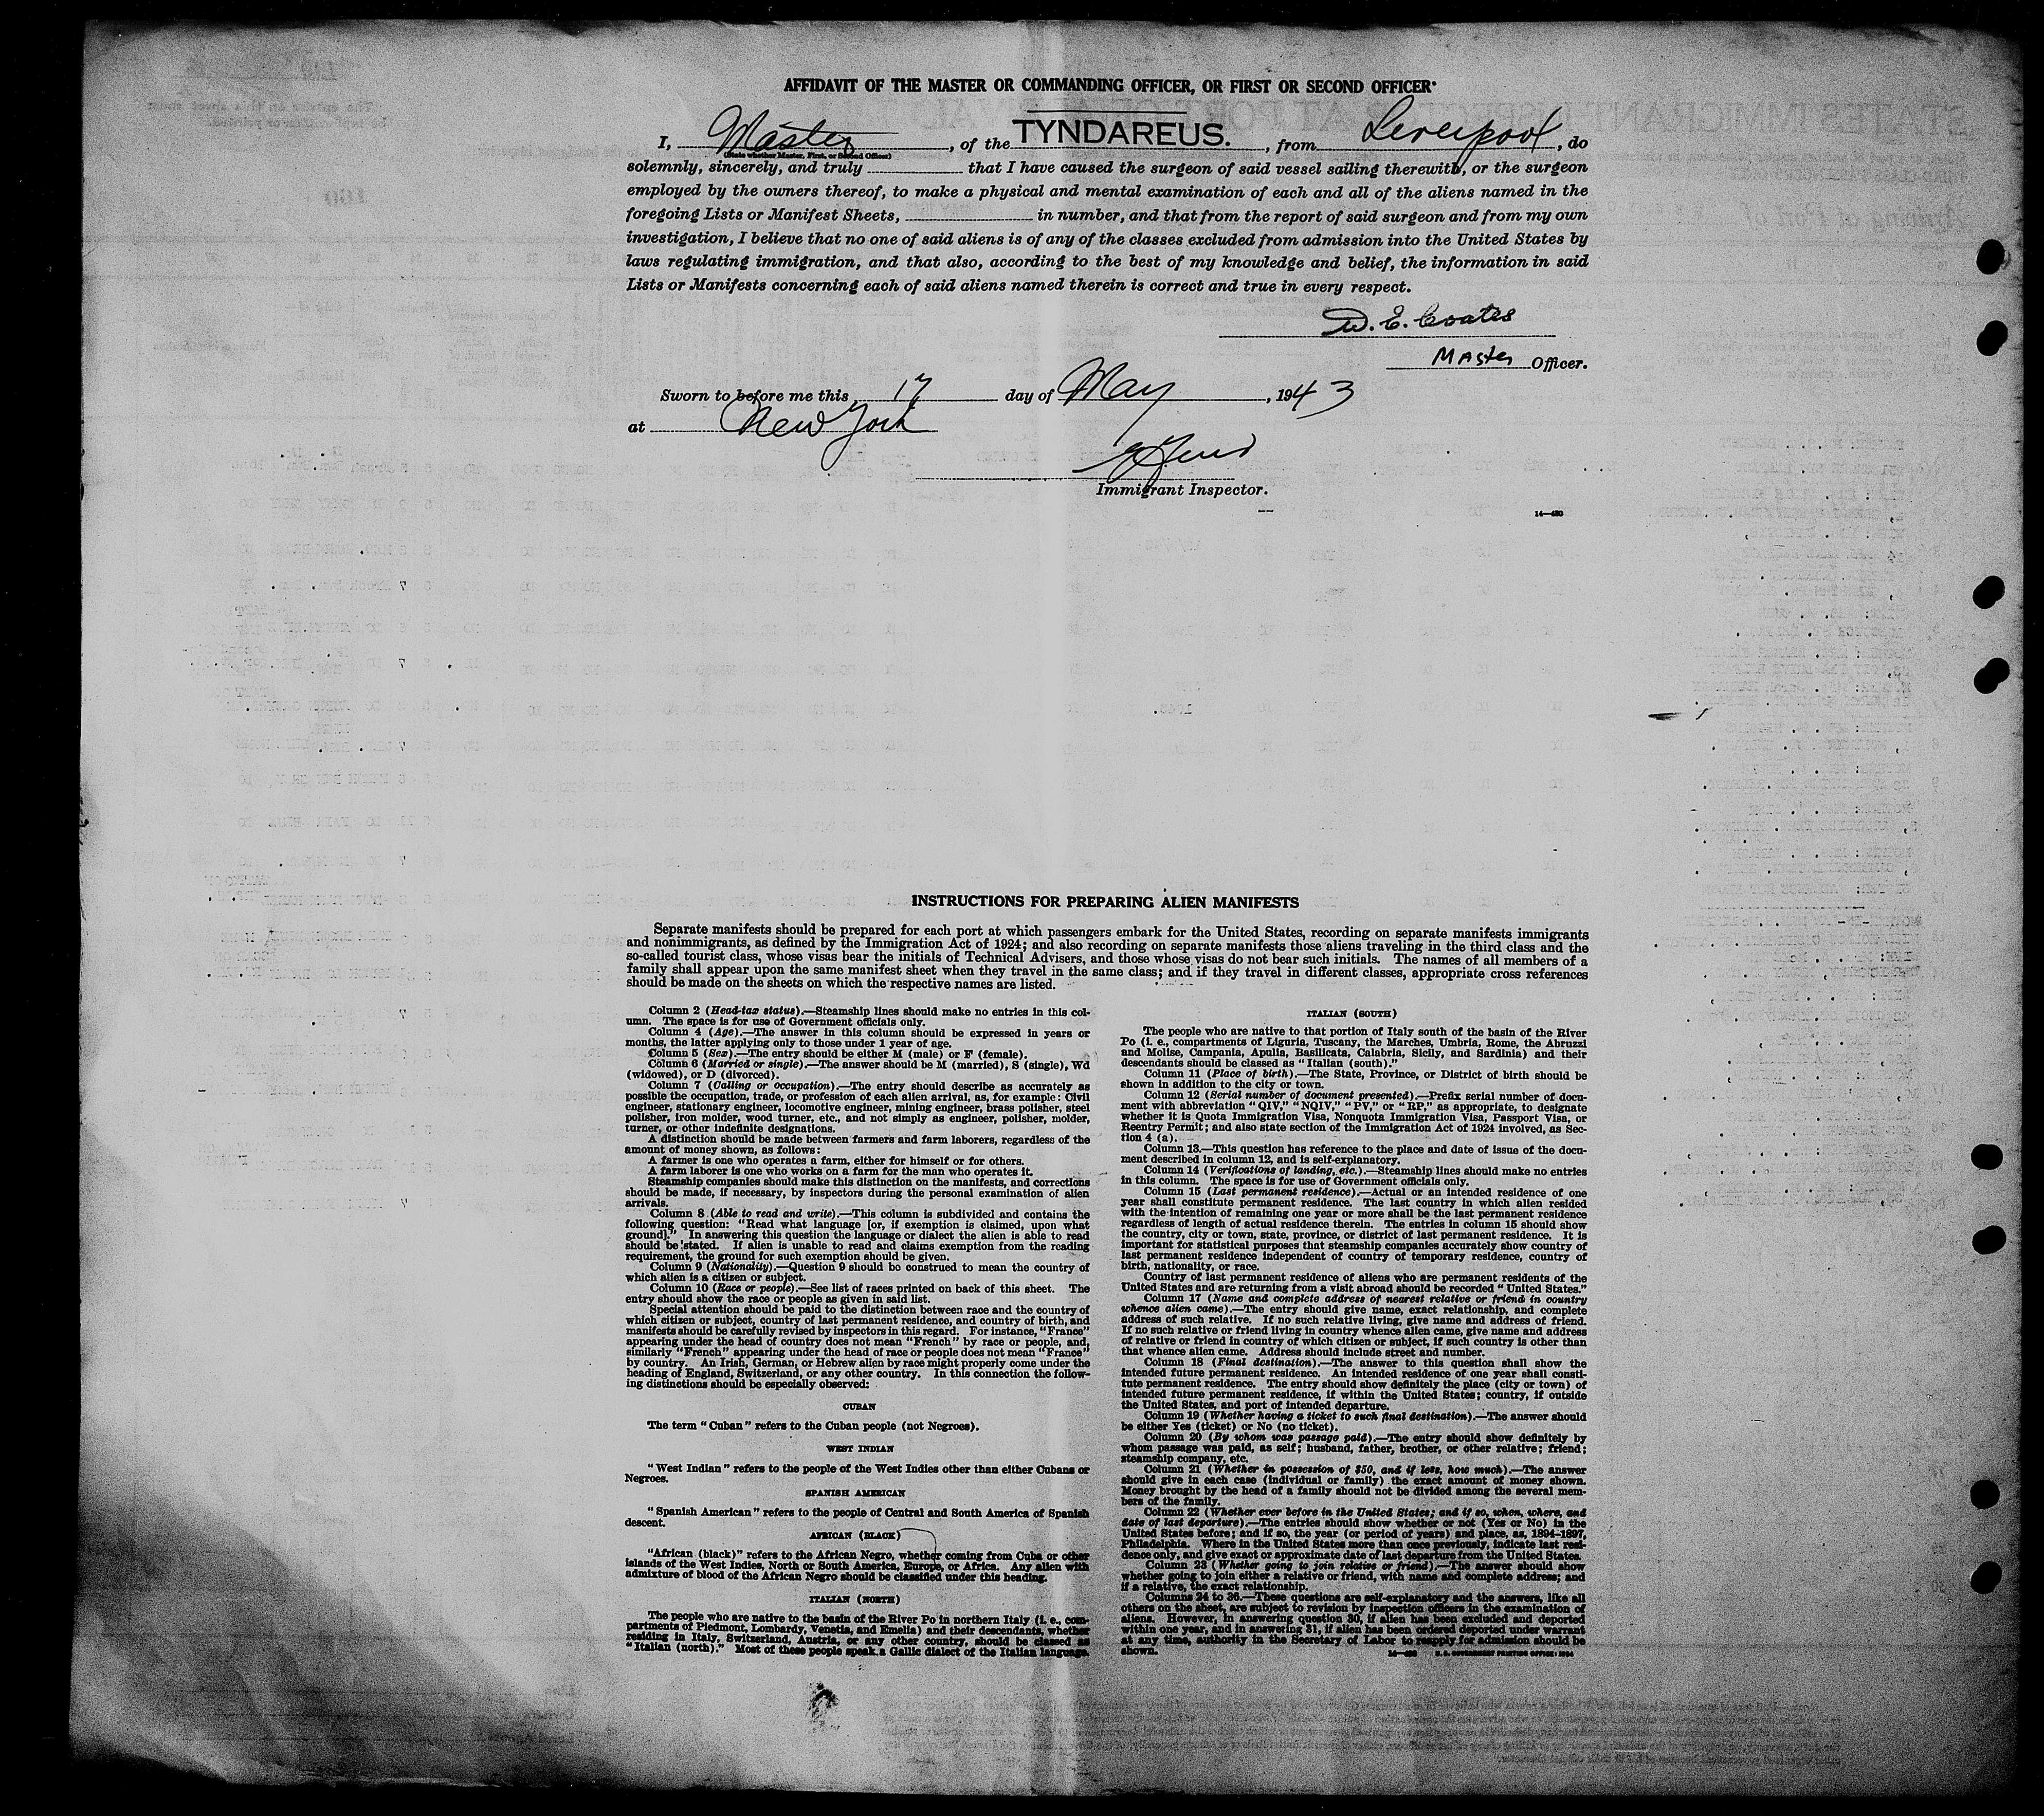 AFFIDAVIT OF THE MASTER OR COMMANDING OFFICER, OR FIRST OR SECOND OFFICER*
I, Master, of the TYNDAREUS., from Liverpool, do
(State whether Master, First, or Second Officer)
solemnly, sincerely, and truly that I have caused the surgeon of said vessel sailing therewith, or the surgeon
employed by the owners thereof, to make a physical and mental examination of each and all of the aliens named in the
foregoing Lists or Manifest Sheets, in number, and that from the report of said surgeon and from my own
investigation, I believe that no one of said aliens is of any of the classes excluded from admission into the United States by
laws regulating immigration, and that also, according to the best of my knowledge and belief, the information in said
Lists or Manifests concerning each of said aliens named therein is correct and true in every respect.
W. E. Coates
Master Officer.
Sworn to before me this 17 day of May, 1943
at New York
Immigrant Inspector.
14—430
INSTRUCTIONS FOR PREPARING ALIEN MANIFESTS
Separate manifests should be prepared for each port at which passengers embark for the United States, recording on separate manifests immigrants
and nonimmigrants, as defined by the Immigration Act of 1924; and also recording on separate manifests those aliens traveling in the third class and the
so-called tourist class, whose visas bear the initials of Technical Advisers, and those whose visas do not bear such initials. The names of all members of a
family shall appear upon the same manifest sheet when they travel in the same class; and if they travel in different classes, appropriate cross references
should be made on the sheets on which the respective names are listed.
Column 2 (Head-tax status).—Steamship lines should make no entries in this col-
umn. The space is for use of Government officials only.
Column 4 (Age).—The answer in this column should be expressed in years or
months, the latter applying only to those under 1 year of age.
Column 5 (Sex).—The entry should be either M (male) or F (female).
Column 6 (Married or single).—The answer should be M (married), S (single), Wd
(widowed), or D (divorced).
Column 7 (Calling or occupation).—The entry should describe as accurately as
possible the occupation, trade, or profession of each alien arrival, as, for example: Civil
engineer, stationary engineer, locomotive engineer, mining engineer, brass polisher, steel
polisher, iron molder, wood turner, etc., and not simply as engineer, polisher, molder,
turner, or other indefinite designations.
A distinction should be made between farmers and farm laborers, regardless of the
amount of money shown, as follows:
A farmer is one who operates a farm, either for himself or for others.
A farm laborer is one who works on a farm for the man who operates it.
Steamship companies should make this distinction on the manifests, and corrections
should be made, if necessary, by inspectors during the personal examination of alien
arrivals.
Column 8 (Able to read and write).—This column is subdivided and contains the
following question: "Read what language [or, if exemption is claimed, upon what
ground]." In answering this question the language or dialect the alien is able to read
should be stated. If alien is unable to read and claims exemption from the reading
requirement, the ground for such exemption should be given.
Column 9 (Nationality).—Question 9 should be construed to mean the country of
which alien is a citizen or subject.
Column 10 (Race or people).—See list of races printed on back of this sheet. The
entry should show the race or people as given in said list.
Special attention should be paid to the distinction between race and the country of
which citizen or subject, country of last permanent residence, and country of birth, and
manifests should be carefully revised by inspectors in this regard. For instance, "France"
appearing under the head of country does not mean "French" by race or people, and,
similarly "French" appearing under the head of race or people does not mean "France"
by country. An Irish, German, or Hebrew alien by race might properly come under the
heading of England, Switzerland, or any other country. In this connection the follow-
ing distinctions should be especially observed:
CUBAN
The term "Cuban" refers to the Cuban people (not Negroes).
WEST INDIAN
"West Indian" refers to the people of the West Indies other than either Cubans or
Negroes.
SPANISH AMERICAN
"Spanish American" refers to the people of Central and South America of Spanish
descent.
AFRICAN (BLACK)
"African (black)" refers to the African Negro, whether coming from Cuba or other
islands of the West Indies, North or South America, Europe, or Africa. Any alien with
admixture of blood of the African Negro should be classified under this heading.
ITALIAN (NORTH)
The people who are native to the basin of the River Po in northern Italy (i. e., com-
partments of Piedmont, Lombardy, Venetia, and Emelia) and their descendants, whether
residing in Italy, Switzerland, Austria, or any other country, should be classed as
"Italian (north)." Most of these people speak a Gallic dialect of the Italian language.
ITALIAN (SOUTH)
The people who are native to that portion of Italy south of the basin of the River
Po (i. e., compartments of Liguria, Tuscany, the Marches, Umbria, Rome, the Abruzzi
and Molise, Campania, Apulia, Basilicata, Calabria, Sicily, and Sardinia) and their
descendants should be classed as "Italian (south)."
Column 11 (Place of birth).—The State, Province, or District of birth should be
shown in addition to the city or town.
Column 12 (Serial number of document presented).—Prefix serial number of docu-
ment with abbreviation "QIV," "NQIV," "PV," or "RP," as appropriate, to designate
whether it is Quota Immigration Visa, Nonquota Immigration Visa, Passport Visa, or
Reentry Permit; and also state section of the Immigration Act of 1924 involved, as Sec-
tion 4 (a).
Column 13.—This question has reference to the place and date of issue of the docu-
ment described in column 12, and is self-explanatory.
Column 14 (Verifications of landing, etc.).—Steamship lines should make no entries
in this column. The space is for use of Government officials only.
Column 15 (Last permanent residence).—Actual or an intended residence of one
year shall constitute permanent residence. The last country in which alien resided
with the intention of remaining one year or more shall be the last permanent residence
regardless of length of actual residence therein. The entries in column 15 should show
the country, city or town, state, province, or district of last permanent residence. It is
important for statistical purposes that steamship companies accurately show country of
last permanent residence independent of country of temporary residence, country of
birth, nationality, or race.
Country of last permanent residence of aliens who are permanent residents of the
United States and are returning from a visit abroad should be recorded "United States."
Column 17 (Name and complete address of nearest relative or friend in country
whence alien came).—The entry should give name, exact relationship, and complete
address of such relative. If no such relative living, give name and address of friend.
If no such relative or friend living in country whence alien came, give name and address
of relative or friend in country of which citizen or subject, if such country is other than
that whence alien came. Address should include street and number.
Column 18 (Final destination).—The answer to this question shall show the
intended future permanent residence. An intended residence of one year shall consti-
tute permanent residence. The entry should show definitely the place (city or town) of
intended future permanent residence, if within the United States; country, if outside
the United States, and port of intended departure.
Column 19 (Whether having a ticket to such final destination).—The answer should
be either Yes (ticket) or No (no ticket).
Column 20 (By whom was passage paid).—The entry should show definitely by
whom passage was paid, as self; husband, father, brother, or other relative; friend;
steamship company, etc.
Column 21 (Whether in possession of $50, and if less, how much).—The answer
should give in each case (individual or family) the exact amount of money shown.
Money brought by the head of a family should not be divided among the several mem-
bers of the family.
Column 22 (Whether ever before in the United States; and if so, when, where, and
date of last departure).—The entries should show whether or not (Yes or No) in the
United States before; and if so, the year (or period of years) and place, as, 1894–1897,
Philadelphia. Where in the United States more than once previously, indicate last resi-
dence only, and give exact or approximate date of last departure from the United States.
Column 23 (Whether going to join relative or friend).—The answer should show
whether going to join either a relative or friend, with name and complete address; and
if a relative, the exact relationship.
Columns 24 to 36.—These questions are self-explanatory and the answers, like all
others on the sheet, are subject to revision by inspection officers in the examination of
aliens. However, in answering question 30, if alien has been excluded and deported
within one year, and in answering 31, if alien has been ordered deported under warrant
at any time, authority in the Secretary of Labor to reapply for admission should be
shown.
14—430 U. S. GOVERNMENT PRINTING OFFICE: 1934